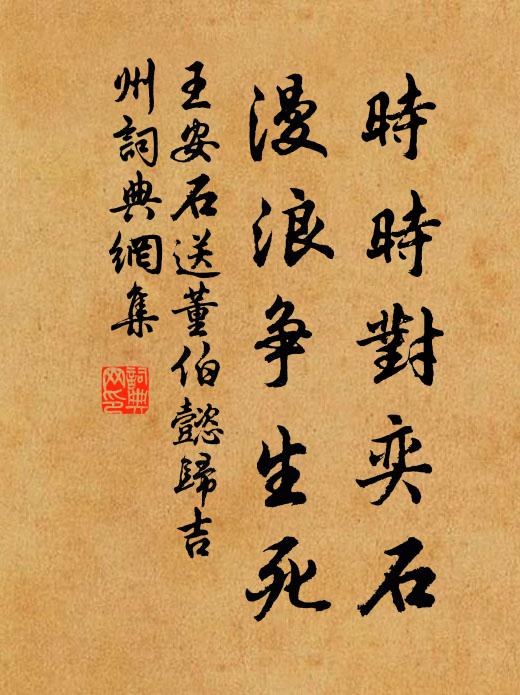 時時對奕石
漫浪争生死
王安石送董伯懿歸吉
州詞典網集
詞典
网印